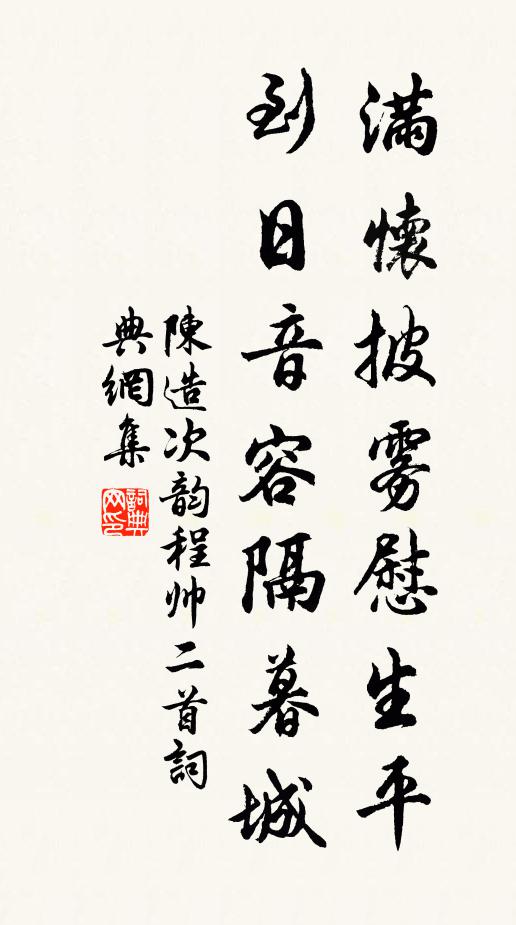 滿懷披雾慰生平
到日音容隔暮城
陳造次韵程帅二首詞
典網集
詞典网印